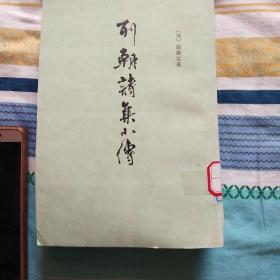 列朝詩集小傳
[清] 錢謙益著